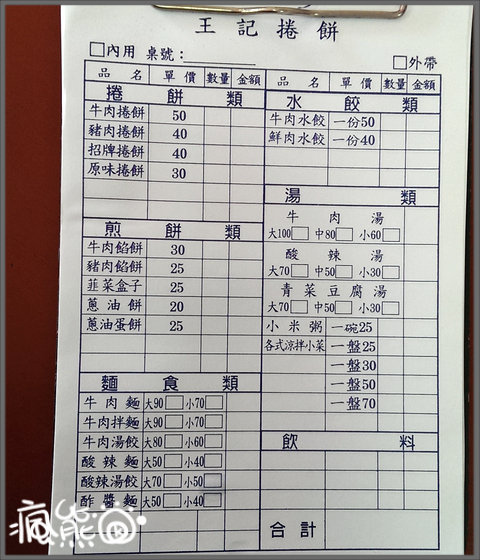 王記捲餅
內用 桌號：
外帶
品名 單價 數量 金額
捲餅類
牛肉捲餅 50
豬肉捲餅 40
招牌捲餅 40
原味捲餅 30
煎餅類
牛肉餡餅 30
豬肉餡餅 25
韮菜盒子 25
蔥油餅 20
蔥油蛋餅 25
麵食類
牛肉麵 大90 小70
牛肉拌麵 大90 小70
牛肉湯餃 大80 小60
酸辣麵 大50 小40
酸辣湯餃 大70 小50
酢醬麵 大50 小40
品名 單價 數量 金額
水餃類
牛肉水餃 一份50
鮮肉水餃 一份40
湯類
牛肉湯
大100 中80 小60
酸辣湯
大70 中50 小30
青菜豆腐湯
大70 中50 小30
小米粥 一碗25
各式涼拌小菜 一盤25
一盤30
一盤50
一盤70
飲料
合計
瘋熊